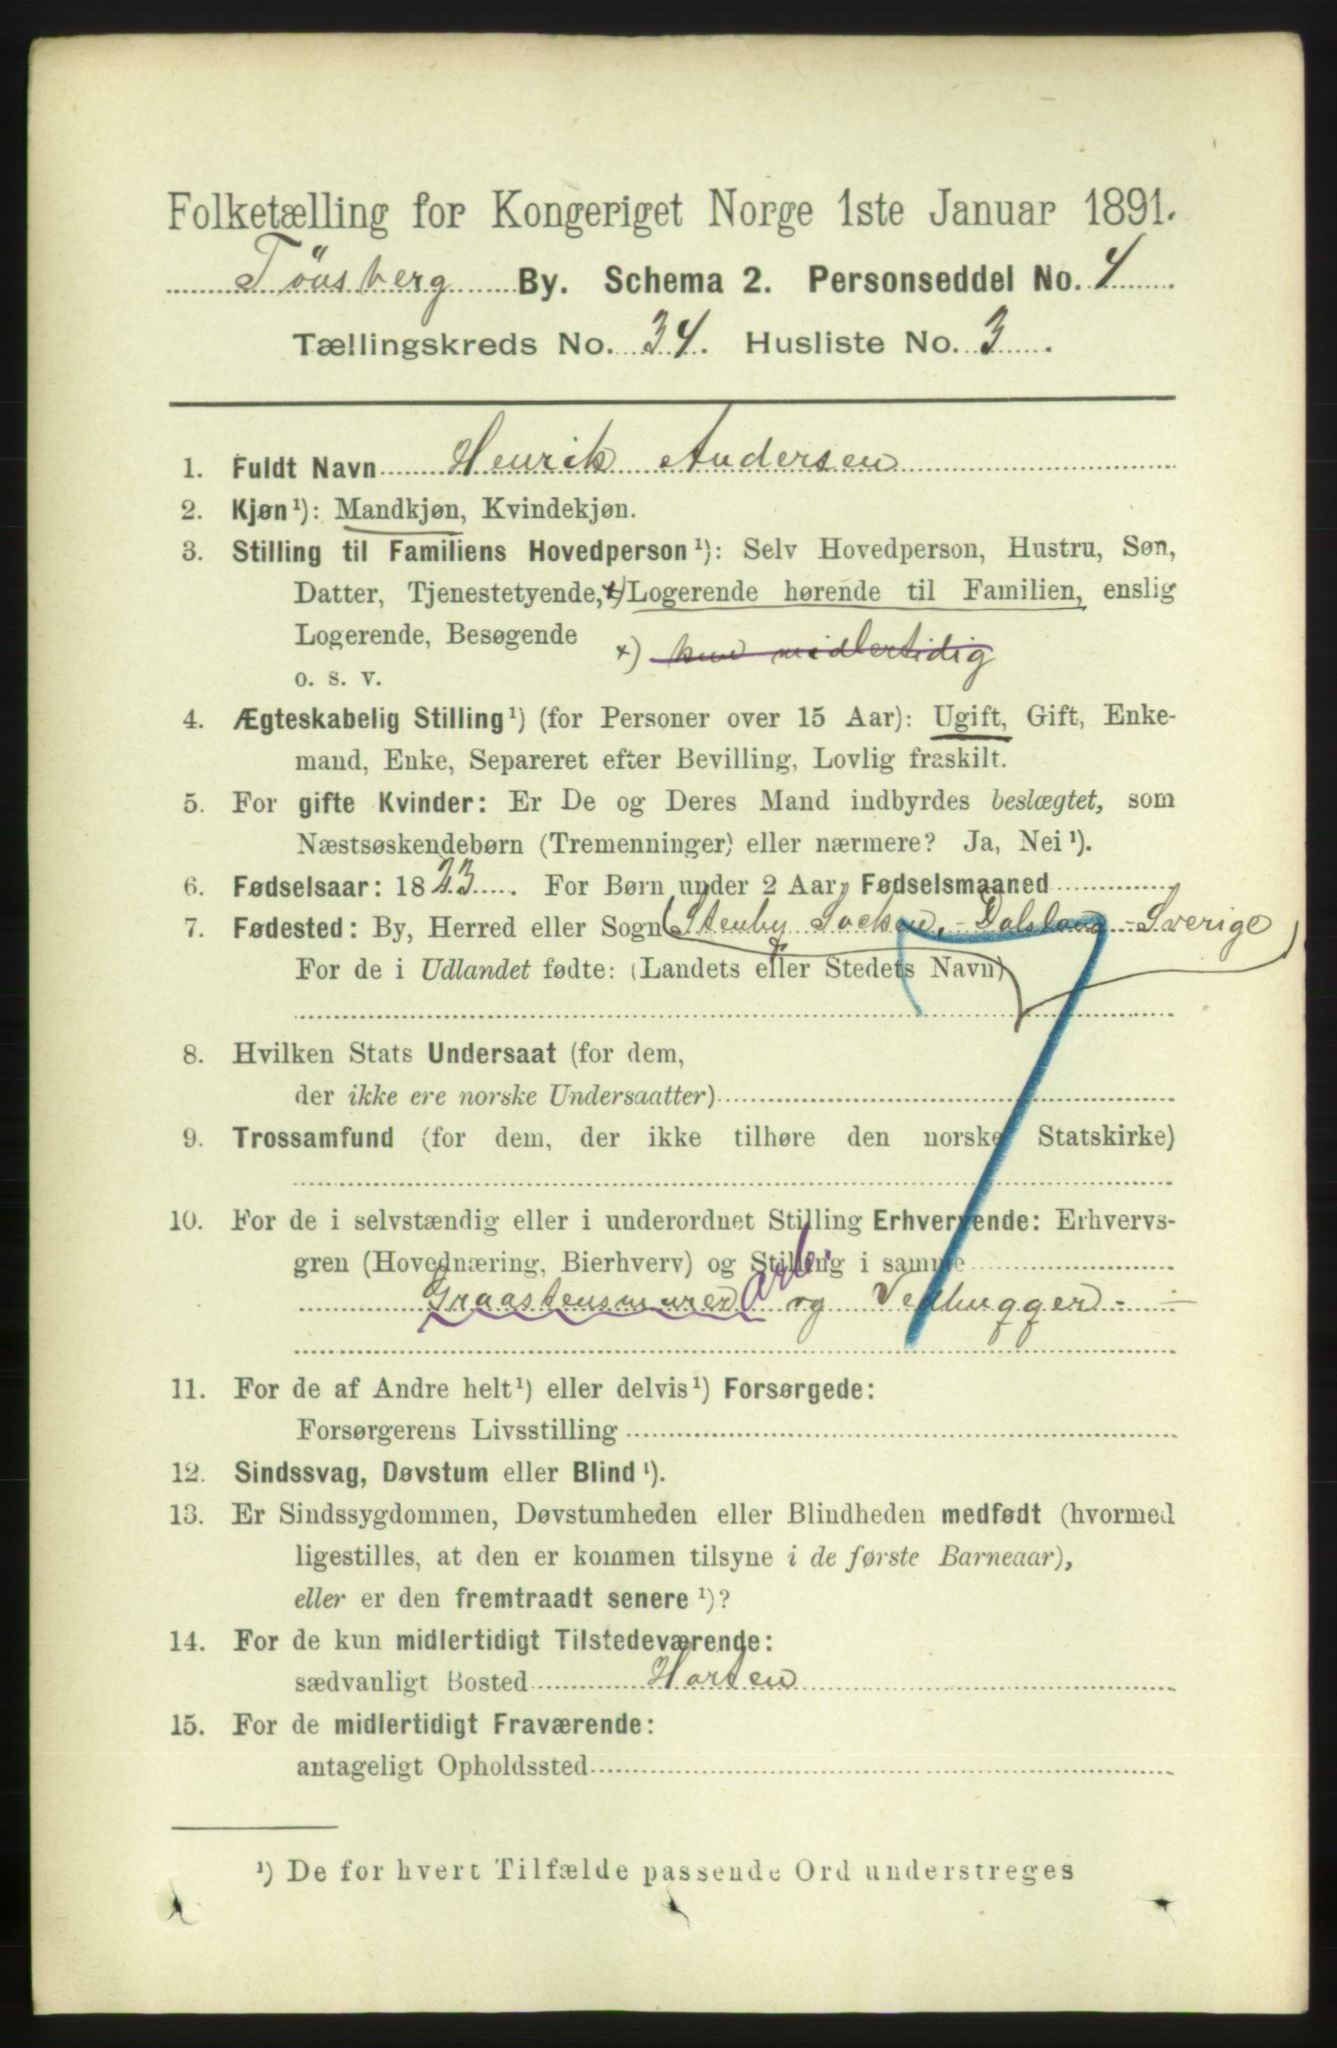 Folketælling for Kongeriget Norge 1ste Januar 1891.
Tönsberg By. Schema 2. Personseddel No. 4.
Tællingskreds No. 34. Husliste No. 3.
1. Fuldt Navn Henrik Andersen
2. Kjøn¹): Mandkjøn, Kvindekjøn.
3. Stilling til Familiens Hovedperson¹): Selv Hovedperson, Hustru, Søn,
Datter, Tjenestetyende, x) Logerende hørende til Familien, enslig
Logerende, Besøgende x) kun midlertidig
o. s. v.
4. Ægteskabelig Stilling¹) (for Personer over 15 Aar): Ugift, Gift, Enke-
mand, Enke, Separeret efter Bevilling, Lovlig fraskilt.
5. For gifte Kvinder: Er De og Deres Mand indbyrdes beslægtet, som
Næstsøskendebørn (Tremenninger) eller nærmere? Ja, Nei¹).
6. Fødselsaar: 1823. For Børn under 2 Aar, Fødselsmaaned
7. Fødested: By, Herred eller Sogn (Stenby Socken, Dalsland - Sverige)
For de i Udlandet fødte: (Landets eller Stedets Navn)
8. Hvilken Stats Undersaat (for dem,
der ikke ere norske Undersaatter)
9. Trossamfund (for dem, der ikke tilhøre den norske Statskirke)
10. For de i selvstændig eller i underordnet Stilling Erhvervende: Erhvervs-
gren (Hovednæring, Bierhverv) og Stilling i samme
Graastensmurer arb. og Vedhugger -
11. For de af Andre helt¹) eller delvis¹) Forsørgede:
Forsørgerens Livsstilling
12. Sindssvag, Døvstum eller Blind¹).
13. Er Sindssygdommen, Døvstumheden eller Blindheden medfødt (hvormed
ligestilles, at den er kommen tilsyne i de første Barneaar),
eller er den fremtraadt senere¹)?
14. For de kun midlertidigt Tilstedeværende:
sædvanligt Bosted Horten
15. For de midlertidigt Fraværende:
antageligt Opholdssted
¹) De for hvert Tilfælde passende Ord understreges